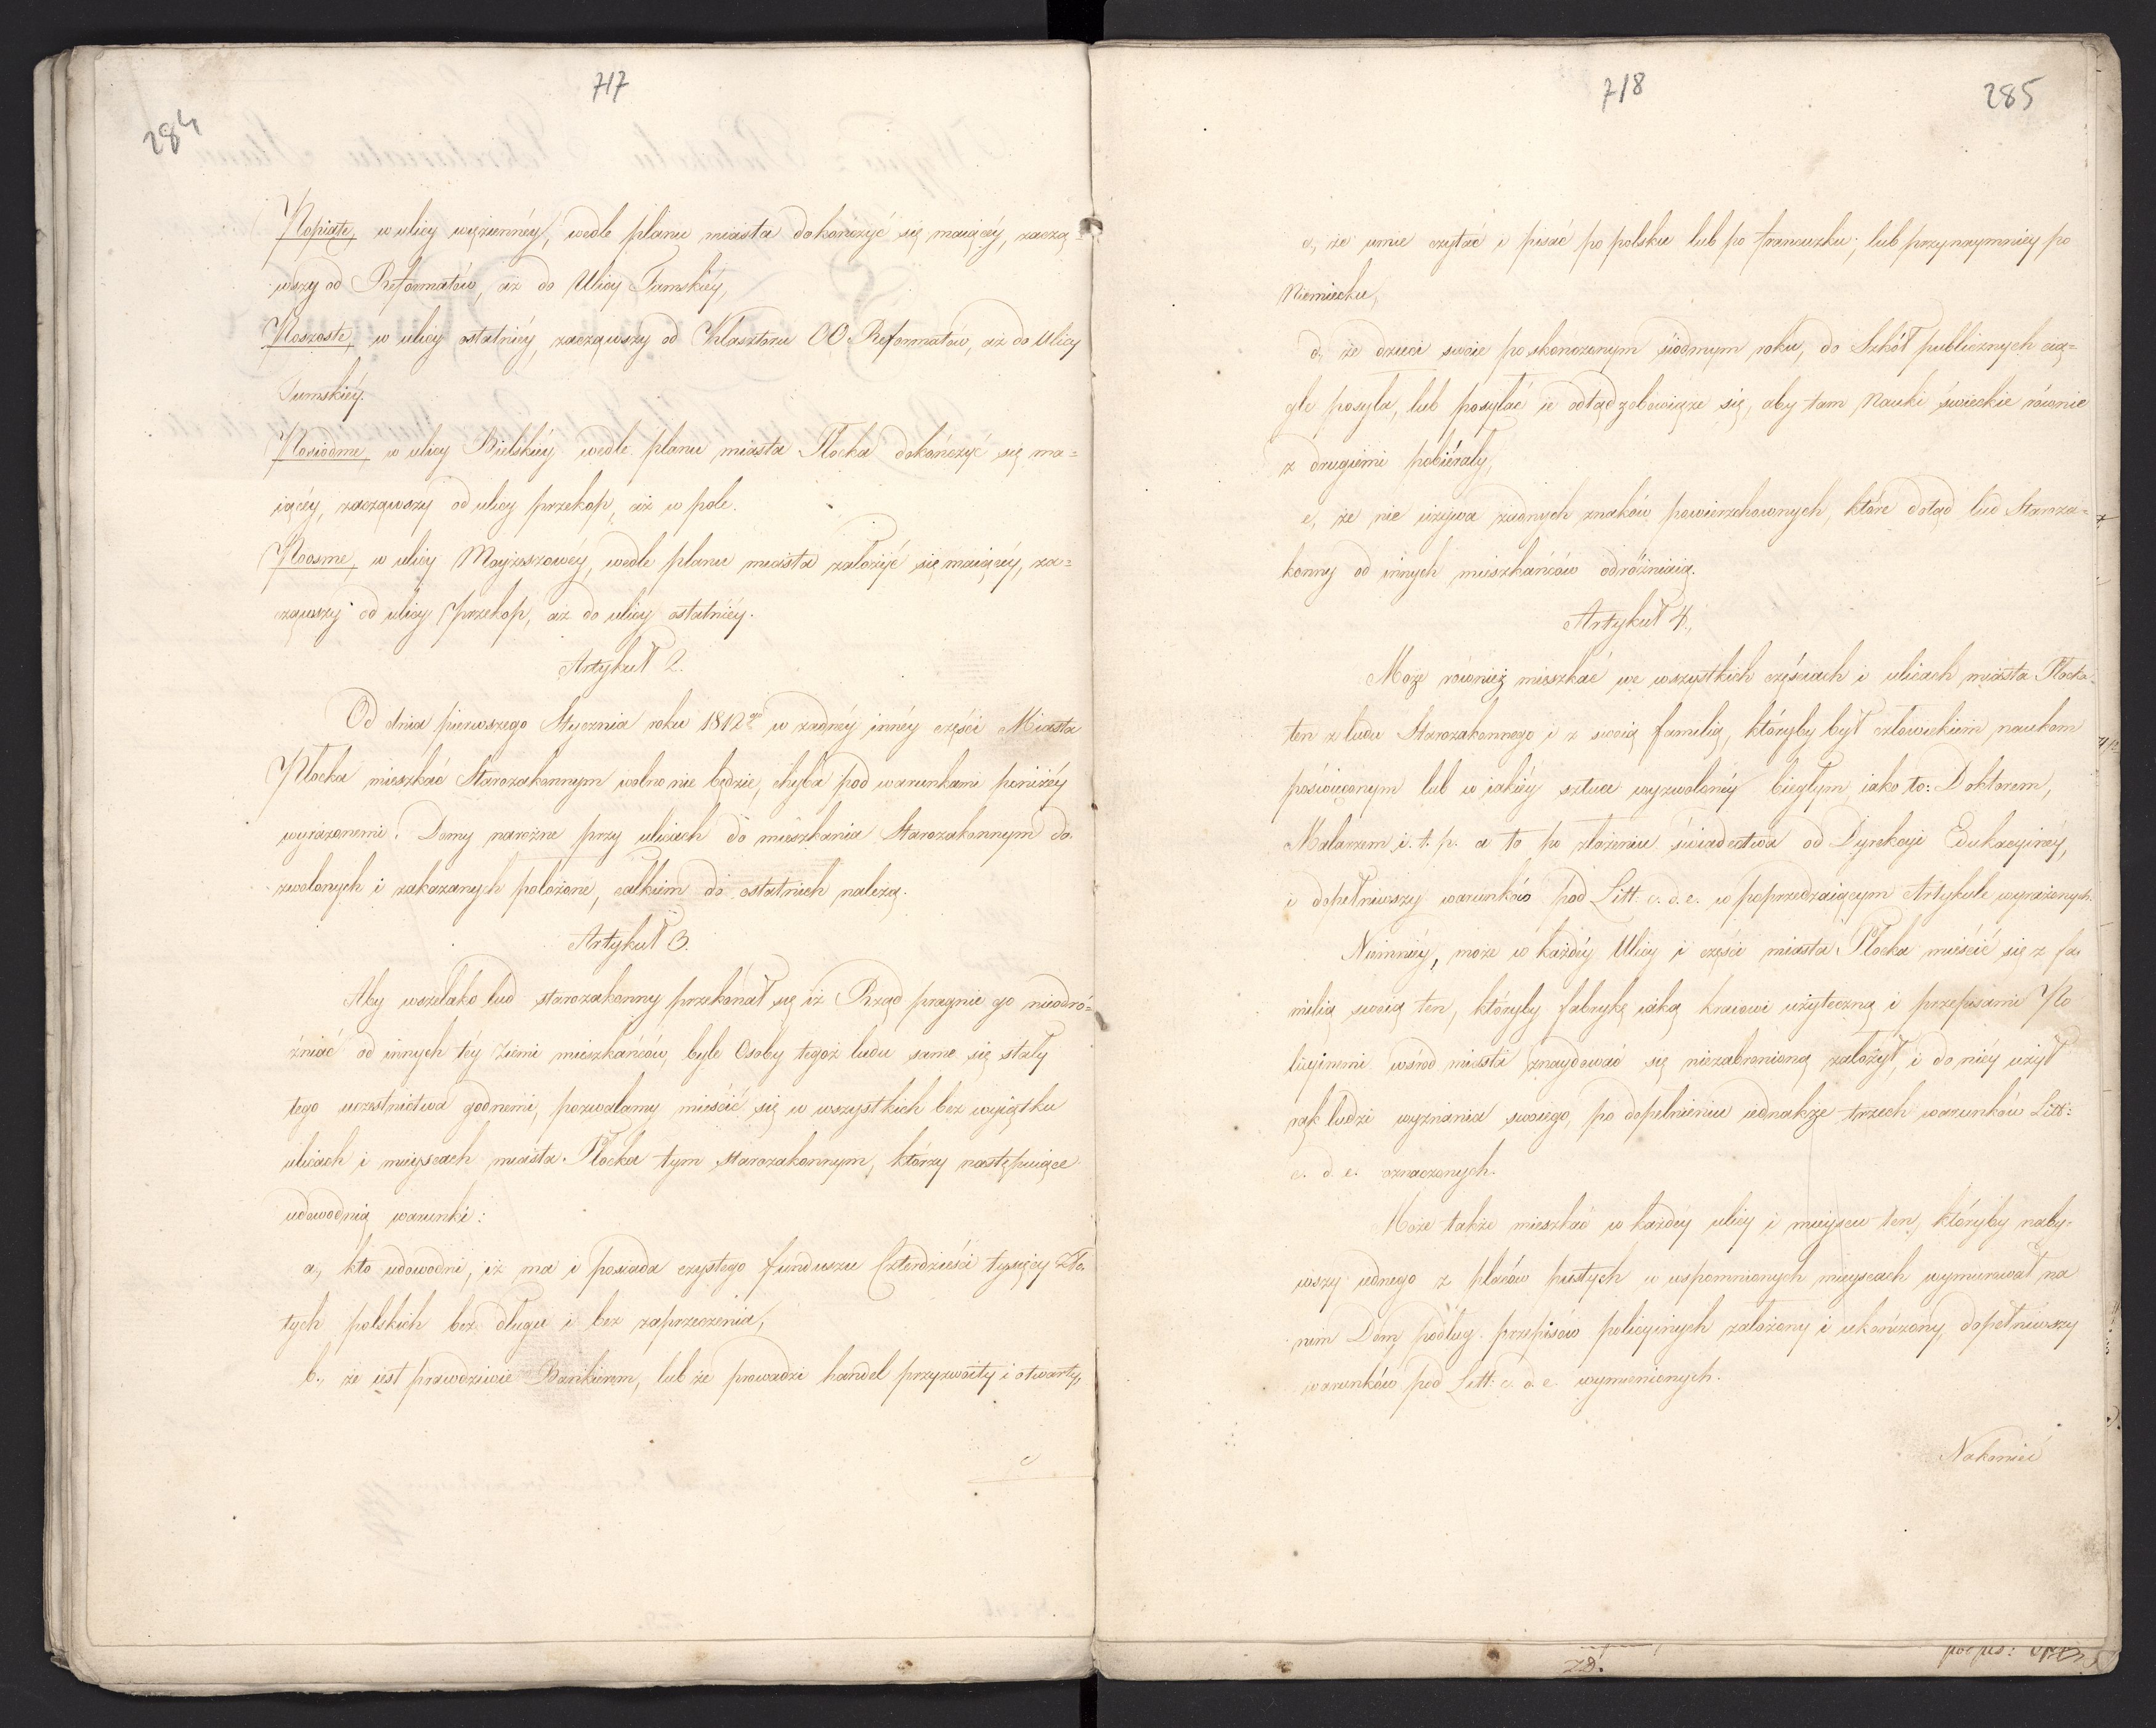 717
284
Popiąte, w ulicy więziennéy, wedle planu miasta dokończyć się maiącéy, zaczą
wszy od Reformatów, aż do Ulicy Tumskiéy,
Poszoste, w ulicy ostatniéy, zacząwszy od Klasztoru OO Reformatów, aż do Ulicy
Tumskiéy.
Posiódme, w ulicy Bielskiéy wedle planu miasta Płocka dokończyć się ma=
iącéy, zacząwszy od ulicy przekop, aż w pole.
Poosme, w ulicy Mayżeszowéy, wedle planu miasta założyć się maiącéy, za=
cząwszy od ulicy przekop, aż do ulicy ostatniéy.
Artykuł 2.
Od dnia pierwszego Stycznia roku 1812go w żadnéy innéy części Miasta
Płocka mieszkać Starozakonnym wolno nie będzie, chyba pod warunkami poniżéy
wyrażonemi. Domy narożne przy ulicach do mieszkania Starozakonnym do
zwolonych i zakazanych położone, całkiem do ostatnich należą.
Artykuł 3.
Aby wszelako lud starozakonny przekonał się iż Rząd pragnie go nieodró=
żniać od innych téy Ziemi mieszkańców, byle Osoby tegoż ludu same się stały
tego uczestnictwa godnemi, pozwalamy mieścić się w wszystkich bez wyiątku
ulicach i mieyscach miasta Płocka tym starozakonnym, którzy następuiące
udowodnią warunki:
a, kto udowodni, iż ma i posiada czystego funduszu Czterdzieści tysięcy Zło
tych polskich bez długu i bez zaprzeczenia,
b., że iest prawdziwie Bankierem, lub że prowadzi handel przyzwoity i otwarty,
c
718
285
c, że umie czytać i pisać po polsku lub po francuzku, lub przynaymniey po
Niemiecku,
d, że dzieci swoie po skonczonym siódmym roku, do Szkół publicznych cią=
gle posyła, lub posyłać ie odtąd zobowiąże się, aby tam Nauki świeckie równie
z drugiemi pobiérały,
e, że nie używa żadnych znaków powierzchownych, które dotąd lud Staroza=
konny od innych mieszkańców odróżniaią.
Artykuł 4.,
Może równiez mieszkać we wszystkich częściach i ulicach miasta Płocka
ten z ludu Starozakonnego i z swoią familią, któryby był człowiekiem naukom
poświęconym lub w iakiéy sztuce wyzwolonéy biegłym iako to: Doktorem,
Malarzem i. t. p. a to po złożeniu świadectwa od Dyrekcyi Edukacyinéy,
i dopełniwszy warunków pod Litt: c. d. e. w poprzedzaiącym Artykule wyrażonych.
Niemniéy, może w każdéy Ulicy i części miasta Płocka mieścić się z fa
milią swoią ten, któryby fabrykę iaką kraiowi użyteczną i przepisami Po
licyinemi wśrod miasta znaydować się niezabronioną założył, i do niéy użył
rąk ludzi wyznania swoiego, po dopełnieniu iednakże trzech warunków Litt:
c. d. e. oznaczonych.
Może także mieszkać w każdéy ulicy i mieyscu ten, któryby naby=
wszy iednego z placów pustych w wspomnionych mieyscach wymurował na
nim Dom podług przepisów policyinych założony i ukończony, dopełniwszy
warunków pod Litt: c. d. e wymienionych.
Nakoniec